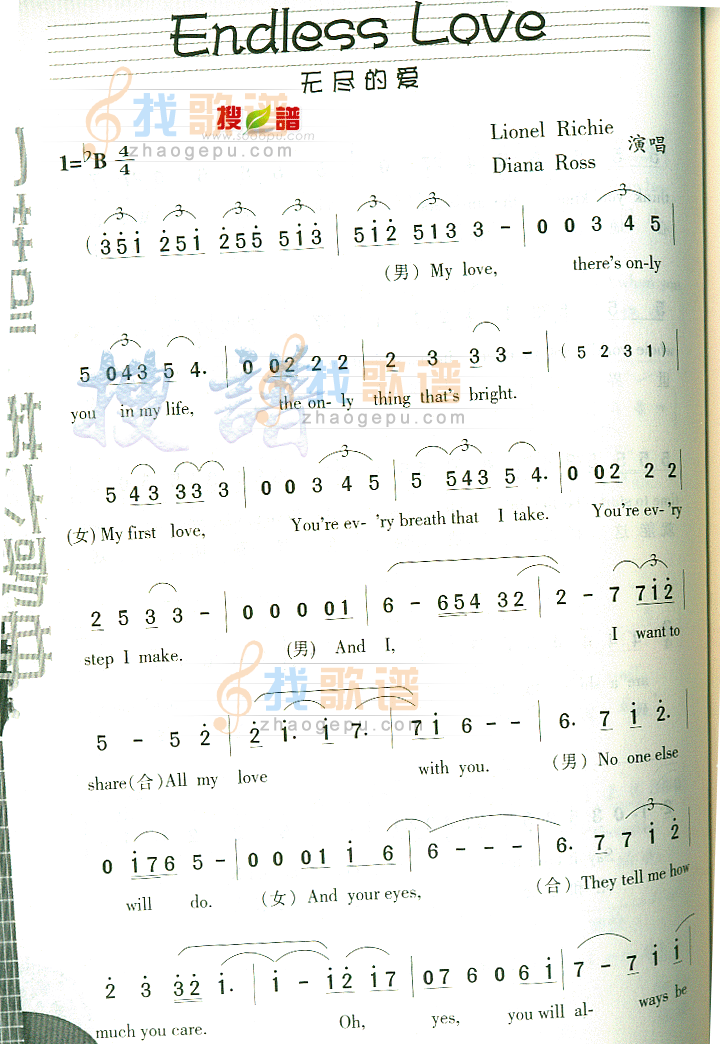 Endless Love
无尽的爱
找歌谱
搜 谱
www.sooopu.com
zhaogepu.com
Lionel Richie
Diana Ross 演唱
1=♭B 4/4
(3 5 1 2 5 1 2 5 5 5 1 3 | 5 1 2 5 1 3 3 - | 0 0 3 4 5 |
(男) My love, there's on-ly
5 0 4 3 5 4. | 0 0 2 2 2 | 2 3 3 3 - | (5 2 3 1) |
you in my life, the on- ly thing that's bright.
搜 谱 找歌谱
zhaogepu.com
5 4 3 3 3 3 | 0 0 3 4 5 | 5 5 4 3 5 4. | 0 0 2 2 2
(女) My first love, You're ev- 'ry breath that I take. You're ev-'ry
2 5 3 3 - | 0 0 0 0 1 | 6 - 6 5 4 3 2 | 2 - 7 7 1 2 |
step I make. (男) And I, I want to
找歌谱
zhaogepu.com
5 - 5 2 | 2 1. 1 7. | 7 1 6 - - | 6. 7 1 2. |
share(合)All my love with you. (男) No one else
0 1 7 6 5 - | 0 0 0 1 1 6 | 6 - - - | 6. 7 7 1 2 |
will do. (女) And your eyes, (合) They tell me how
2 3 3 2 1. | 1 - 1 2 1 7 | 0 7 6 0 6 1 | 7 - 7 1 1 |
much you care. Oh, yes, you will al- ways be